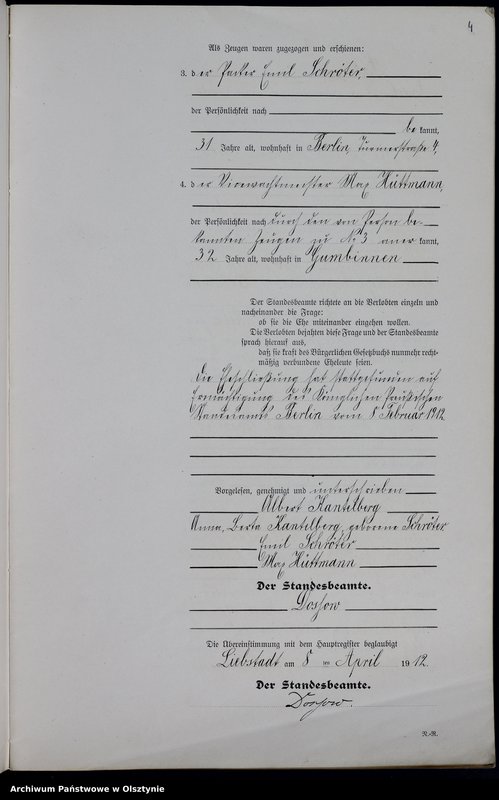 4
Als Zeugen waren zugezogen und erschienen:
3. der Packer Emil Schröter,
der Persönlichkeit nach
be kannt,
31 Jahre alt, wohnhaft in Berlin, Turmstraße 4,
4. der Vizewachtmeister Max Hüttmann,
der Persönlichkeit nach durch den von Person be-
kannten Zeugen zu No 3 aner kannt,
32 Jahre alt, wohnhaft in Gumbinnen
Der Standesbeamte richtete an die Verlobten einzeln und
nacheinander die Frage:
ob sie die Ehe miteinander eingehen wollen.
Die Verlobten bejahten diese Frage und der Standesbeamte
sprach hierauf aus,
daß sie kraft des Bürgerlichen Gesetzbuchs nunmehr recht-
mäßig verbundene Eheleute seien.
Die Eheschließung hat stattgefunden auf
Ermächtigung des Königlichen Preußischen
Standesamts Berlin vom 8. Februar 1912.
Vorgelesen, genehmigt und unterschrieben
Albert Kantelberg
Anna, Berta Kantelberg, geborene Schröter
Emil Schröter
Max Hüttmann
Der Standesbeamte.
Dossow
Die Übereinstimmung mit dem Hauptregister beglaubigt
Liebstadt am 8 ten April 1912.
Der Standesbeamte.
Dossow.
R.-R.
Archiwum Państwowe w Olsztynie